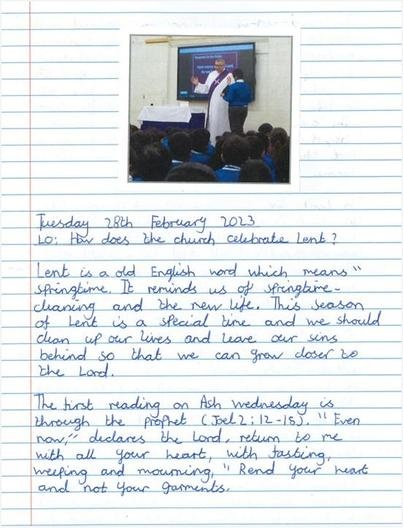 Tuesday 28th February 2023
LO: How does the church celebrate Lent?
Lent is a old English word which means "
springtime. It reminds us of springtime-
cleaning and the new life. This season
of Lent is a special time and we should
clean up our lives and leave our sins
behind so that we can grow closer to
the Lord.
The first reading on Ash Wednesday is
through the prophet (Joel 2:12-18). "Even
now," declares the Lord, return to me
with all your heart, with fasting,
weeping and mourning," Rend your heart
and not your garments.